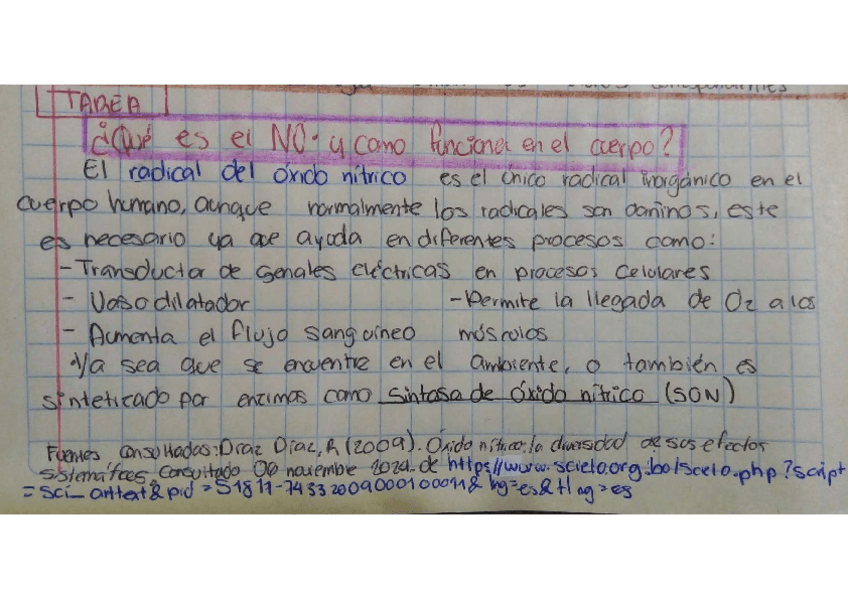 TAREA
¿Qué es el NO· y como funciona en el cuerpo?
El radical del óxido nítrico es el único radical inorgánico en el
cuerpo humano, aunque normalmente los radicales son dañinos, este
es necesario ya que ayuda en diferentes procesos como:
- Transductor de señales eléctricas en procesos celulares
- Vasodilatador - Permite la llegada de O2 a los
- Aumenta el flujo sanguíneo músculos
Ya sea que se encuentre en el ambiente, o también es
sintetizado por enzimas como sintasa de óxido nítrico (SON)
Fuentes consultadas: Díaz Díaz, R (2009). Óxido nítrico: la diversidad de sus efectos
Consultado 06 noviembre 2024. de https://www.scielo.org.bo/scielo.php?script
=sci_arttext&pid=S1817-74332009000100011&lng=es&tlng=es